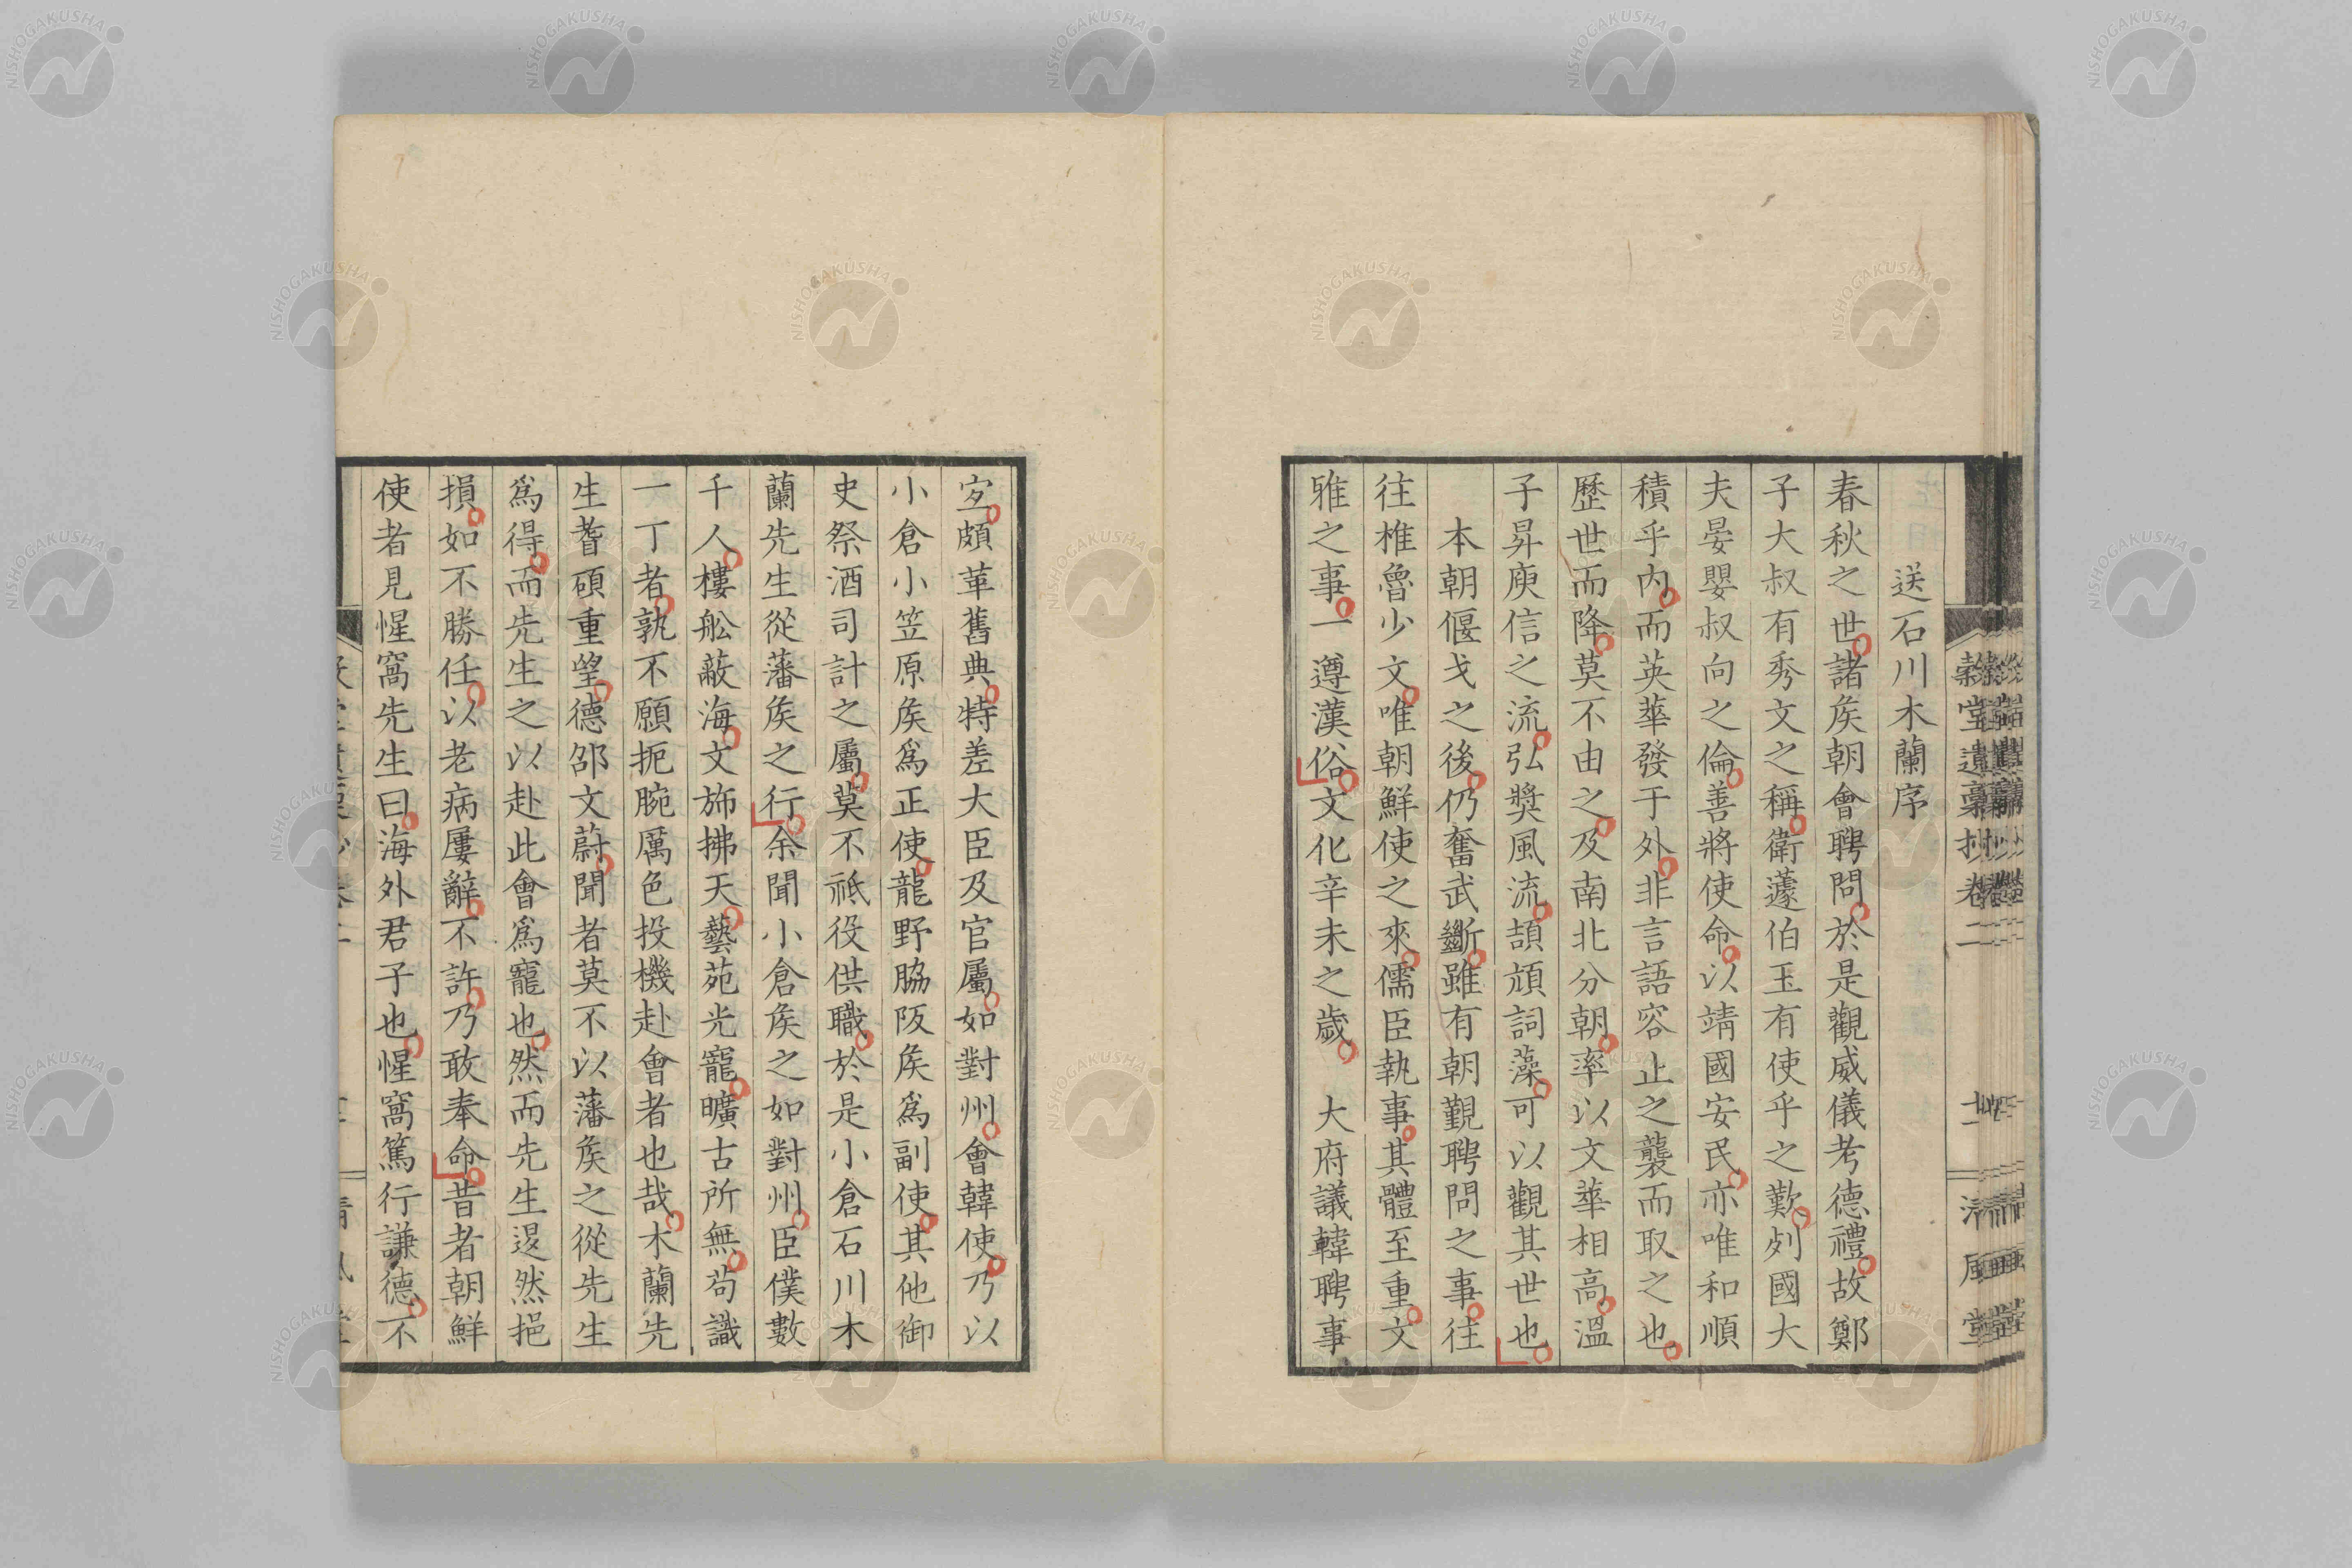 送石川木蘭序
春秋之世諸矦朝會聘問於是觀威儀考德禮故鄭
子大叔有秀文之稱衛蘧伯玉有使乎之歎列國大
夫晏嬰叔向之倫善將使命以靖國安民亦唯和順
積乎內而英華發于外非言語容止之襲而取之也
歷世而降莫不由之及南北分朝率以文華相高溫
子昇庾信之流弘獎風流頡頏詞藻可以觀其世也
本朝偃戈之後仍奮武斷雖有朝覲聘問之事往
往椎魯少文唯朝鮮使之來儒臣執事其體至重文
雅之事一遵漢俗文化辛未之歲 大府議韓聘事
宜頗革舊典特差大臣及官屬如對州會韓使乃以
小倉小笠原矦爲正使龍野脇阪矦爲副使其他御
史祭酒司計之屬莫不祗役供職於是小倉石川木
蘭先生從藩矦之行余聞小倉矦之如對州臣僕數
千人樓舩蔽海文斾拂天藝苑光寵曠古所無茍識
一丁者孰不願扼腕厲色投機赴會者也哉木蘭先
生耆碩重望德邵文蔚聞者莫不以藩矦之從先生
爲得而先生之以赴此會爲寵也然而先生逡然挹
損如不勝任以老病屢辭不許乃敢奉命昔者朝鮮
使者見惺窩先生曰海外君子也惺窩篤行謙德不
穀堂遺稾抄卷二
十一
清風堂
NISHOGAKUSHA